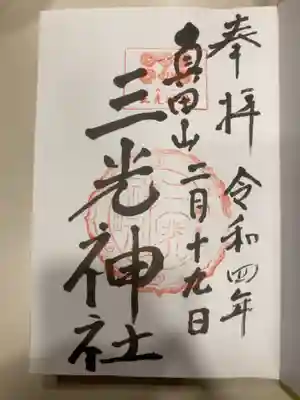 奉拝 令和四年
真田山 二月十九日
三光神社